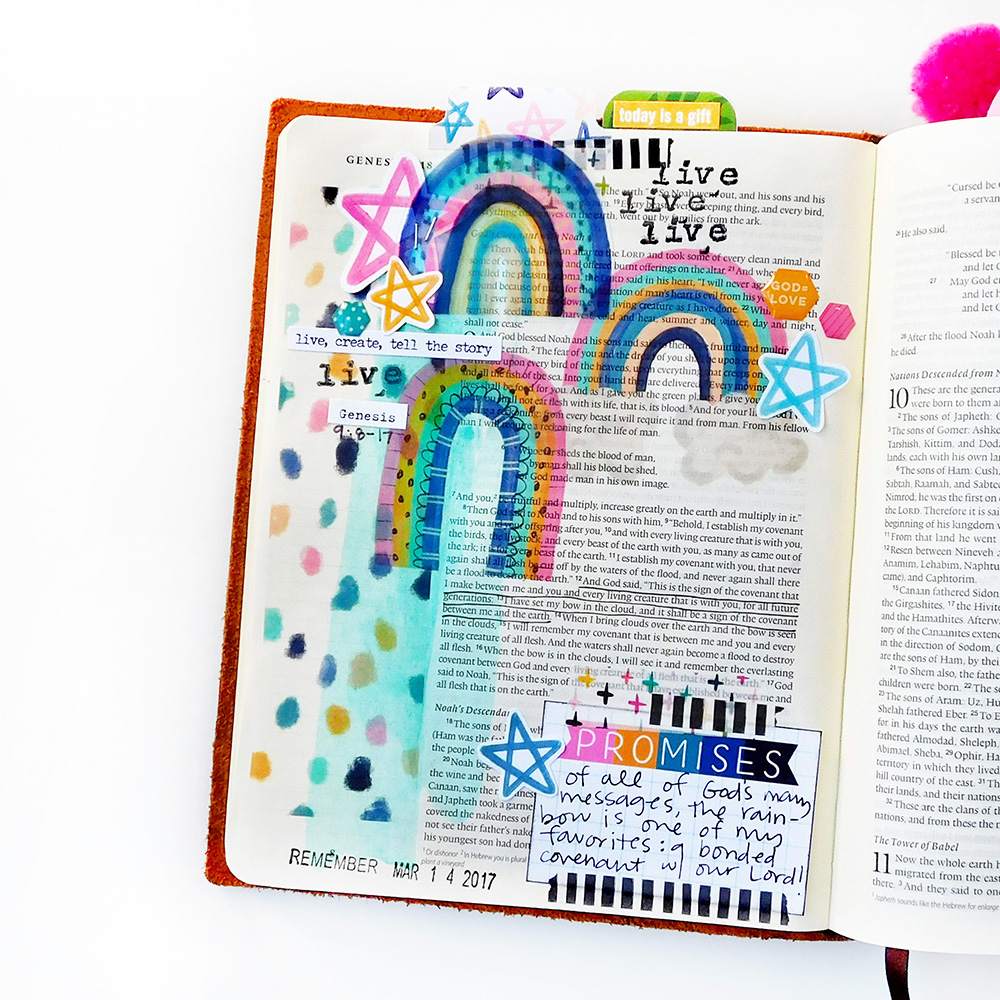 today is a gift
GENES 18
live
live
live
the earth." 18 So Noah went out, and his sons and his
19 Every beast, every creeping thing, and every bird,
everything that moves on the earth, went out by families from the ark.
God's Covenant with Noah
Then Noah built an altar to the LORD and took some of every clean animal and
of every clean bird and offered burnt offerings on the altar. 21 And when the LORD
smelled the pleasing aroma, the LORD said in his heart, "I will never again
ground because of man, for the intention of man's heart is evil from his
will I ever again strike down every living creature as I have done. 22 While
remains, seedtime and harvest, cold and heat, summer and winter, day and night,
shall not cease."
GOD= LOVE
live, create, tell the story
And God blessed Noah and his sons and said to them, "Be fruitful and multiply
earth. 2 The fear of you and the dread of you shall be upon every
upon every bird of the heavens, upon everything that creeps on
and all the fish of the sea. Into your hand they are delivered. 3 Every moving
lives shall be food for you. And as I gave you the green plants, I give you
you shall not eat flesh with its life, that is, its blood. 5 And for your
a reckoning: from every beast I will require it and from man. From his fellow
man I will require a reckoning for the life of man.
live
Genesis
9:8-17
"Whoever sheds the blood of man,
by man shall his blood be shed,
for God made man in his own image.
7 And you, be fruitful and multiply, increase greatly on the earth and multiply in it."
8 Then God said to Noah and to his sons with him, 9 "Behold, I establish my covenant
with you and your offspring after you, 10 and with every living creature that is with you,
the birds, the livestock, and every beast of the earth with you, as many as came out of
the ark; it is for every beast of the earth. 11 I establish my covenant with you, that never
again shall all flesh be cut off by the waters of the flood, and never again shall there
be a flood to destroy the earth." 12 And God said, "This is the sign of the covenant that
I make between me and you and every living creature that is with you, for all future
generations: 13 I have set my bow in the cloud, and it shall be a sign of the covenant
between me and the earth. 14 When I bring clouds over the earth and the bow is seen
in the clouds, 15 I will remember my covenant that is between me and you and every
living creature of all flesh. And the waters shall never again become a flood to destroy
all flesh. 16 When the bow is in the clouds, I will see it and remember the everlasting
covenant between God and every living creature of all flesh that is on the earth." 17 God
said to Noah, "This is the sign of the covenant that I have established between me and
all flesh that is on the earth."
Noah's Descendants
18 The sons of
(Ham was the
the people
20 Noah
the wine and
Canaan, saw the
and Japheth took a
covered the nakedness of
not see their father's
his youngest son had done
1 Or dishonor 2 In Hebrew you is plural
plant a vineyard
PROMISES
of all of God's many
messages, the rain-
bow is one of my
favorites: a bonded
covenant w/ our Lord!
REMEMBER MAR 14 2017
"Cursed be
a servant
26 He also said,
"Blessed be
and let
27 May God
and let
and let
28 After the flood Noah
he died.
Nations Descended from
10 These are the
were born to them
2 The sons of Japheth:
3 The sons of Gomer:
Tarshish, Kittim, and
lands, each with his own
6 The sons of Ham: Cush,
Sabtah, Raamah, and
Nimrod; he was the first on
the LORD. Therefore it is
beginning of his kingdom
11 From that land he went
12 Resen between Nineveh
Anamim, Lehabim,
came), and Caphtorim.
15 Canaan fathered Sidon
the Girgashites, 17 the
and the Hamathites.
tory of the Canaanites
in the direction of Sodom,
are the sons of Ham, by their
21 To Shem also, the father
children were born. 22 The
23 The sons of Aram: Uz,
Shelah fathered Eber. 25 To
for in his days the earth
fathered Almodad, Sheleph,
Abimael, Sheba, 29 Ophir,
territory in which they lived
hill country of the east. 31
their lands, and their nations
32 These are the clans of
nations, and from these
The Tower of Babel
11 Now the whole earth
migrated from the east
there. 3 And they said to one
1 Japheth sounds like the Hebrew for enlarge